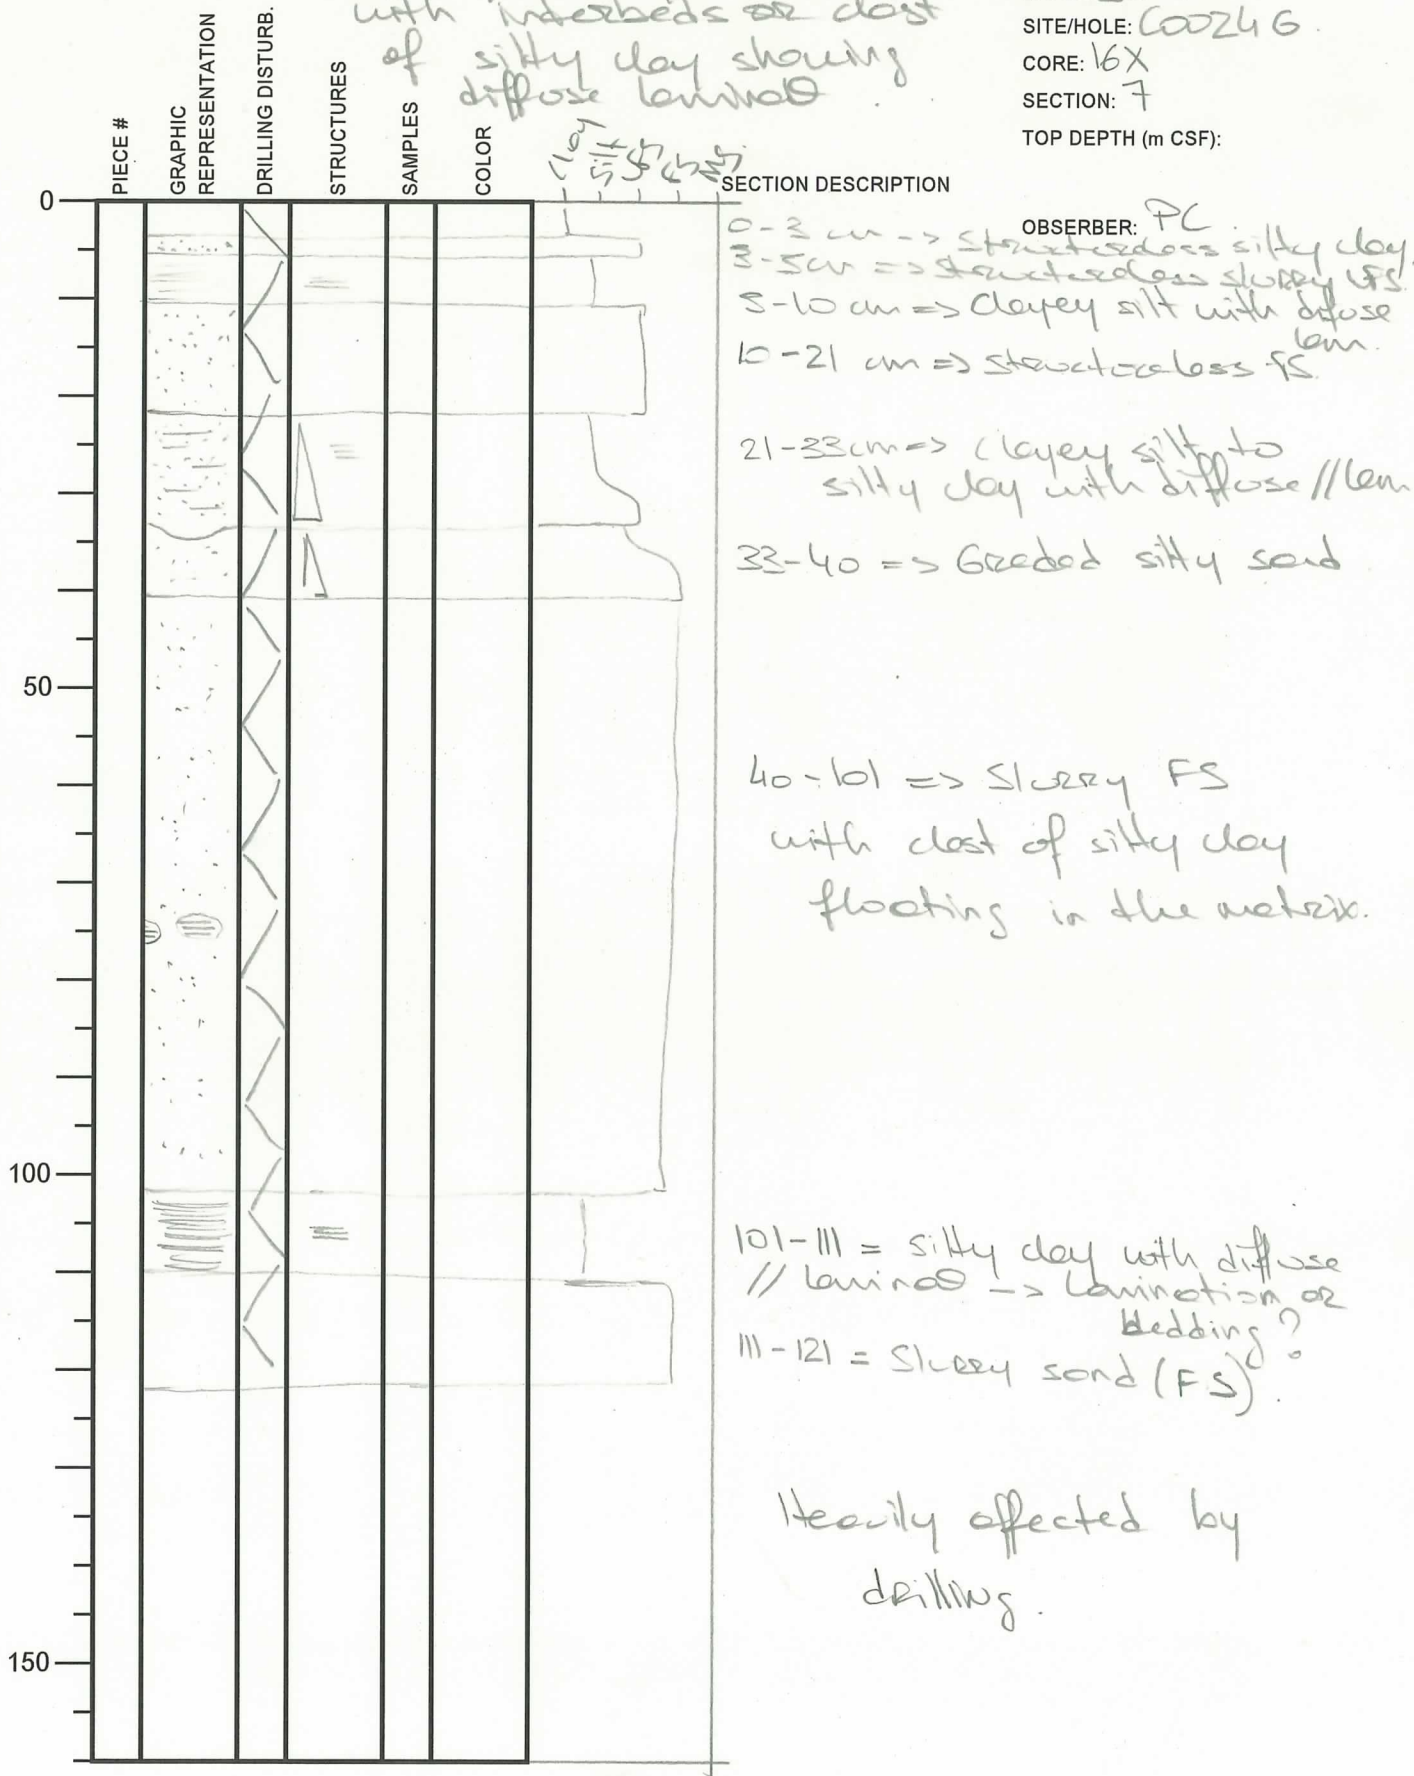 with interbeds or clast
of silty clay showing
diffuse laminae.
SITE/HOLE: C0024G.
CORE: 16X
SECTION: 7
TOP DEPTH (m CSF):
PIECE #
GRAPHIC
REPRESENTATION
DRILLING DISTURB.
STRUCTURES
SAMPLES
COLOR
clay
silt
SECTION DESCRIPTION
OBSERBER: PC.
0
0-3 cm -> Structureless silty clay
3-5cm => Structureless slurry VFS.
5-10 cm => Clayey silt with difuse
lam.
10-21 cm => structureless fS.
21-33cm => Clayey silt to
silty clay with diffuse // lam
33-40 => Graded silty sand
50
40-101 => Slurry FS
with clast of silty clay
floating in the matrix.
100
101-111 = Silty clay with diffuse
// laminae -> Lamination or
bedding?
111-121 = Slurry sand (FS).
Heavily affected by
drilling.
150